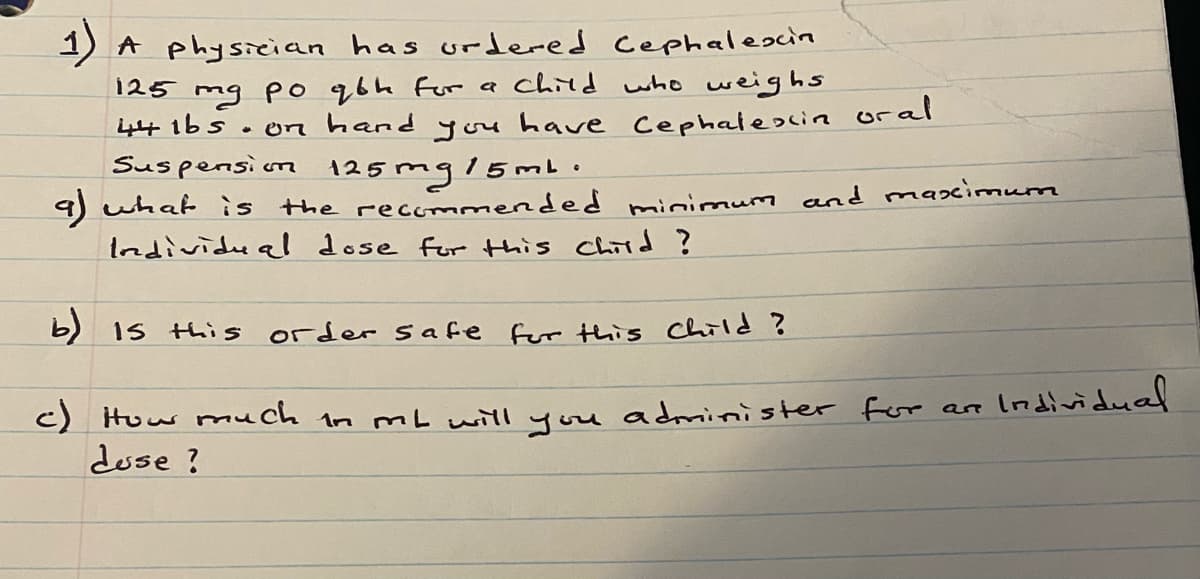 1) A physician has ordered Cephalexin
125 mg po q6h for a child who weighs
44 lbs. on hand you have Cephalexin oral
Suspension 125mg/5mL.
a) what is the recommended minimum and maximum
Individual dose for this child ?
b) Is this order safe for this child ?
c) How much in mL will you administer for an Individual
dose ?